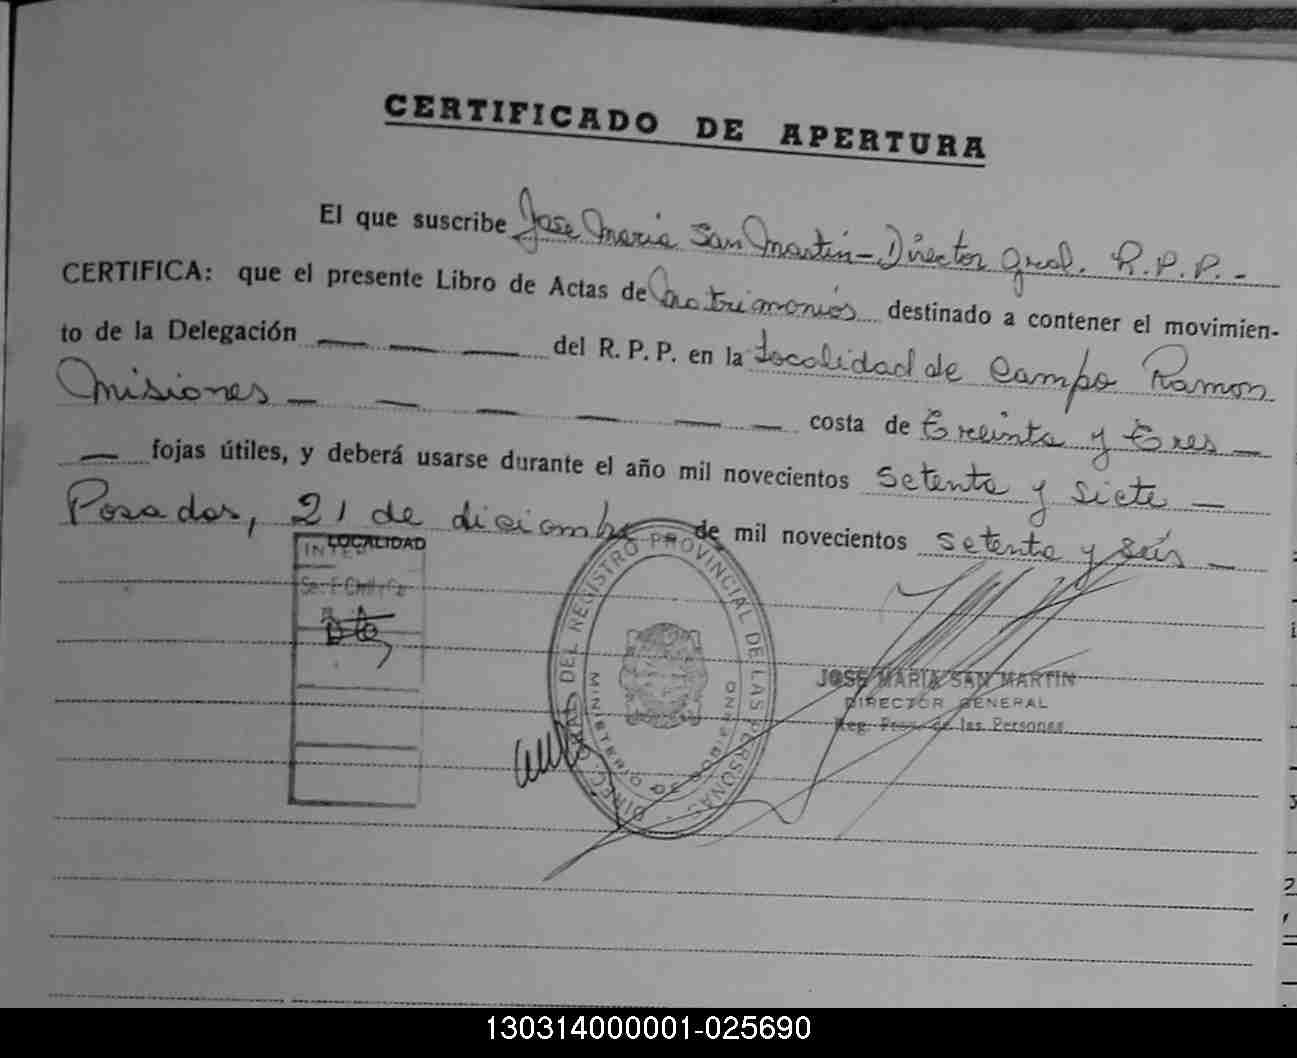 CERTIFICADO DE APERTURA
El que suscribe Jose Maria San Martin - Director Gral. R.P.P. -
CERTIFICA: que el presente Libro de Actas de Matrimonios destinado a contener el movimien-
to de la Delegación — — — del R. P. P. en la Localidad de Campo Ramon
Misiones — — — — — — costa de Treinta y Tres —
— fojas útiles, y deberá usarse durante el año mil novecientos Setenta y Siete —
Posadas, 21 de diciembre de mil novecientos Setenta y Seis —
LOCALIDAD
DEL REGISTRO PROVINCIAL DE LAS PERSONAS
MINISTERIO DE GOBIERNO
JOSE MARIA SAN MARTIN
DIRECTOR GENERAL
Reg. Prov. de las Personas
130314000001-025690